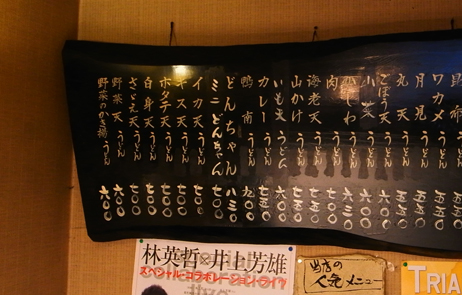 ワカメ うどん
月見 うどん 五五〇
丸天 うどん 五五〇
ごぼう天 うどん
うどん 六〇〇
うどん
肉 うどん
海老天 うどん 七五〇
山かけ うどん 七〇〇
いも天 うどん 六〇〇
カレー うどん 七五〇
鴨南 うどん 九〇〇
どんちゃん 八三〇
ミニどんちゃん 七〇〇
イカ天 うどん 七〇〇
キス天 うどん 七〇〇
ホタテ天 うどん 七〇〇
白身天 うどん 七〇〇
さざえ天 うどん 七〇〇
野菜天 うどん 六〇〇
野菜のかき揚 うどん 六〇〇
林英哲×井上芳雄
スペシャル・コラボレーション・ライヴ
当店の
人気メニュー
TRIA